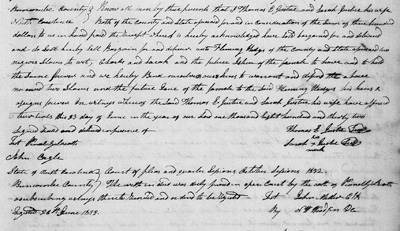 Buncombe County } Know all men by these presents that I Thomas E. Justice and Sarah Justice his wife
North Carolina } Both of the County and State aforesaid for and in consideration of the Sum of three hundred
dollars to us in hand paid the receipt whereof is hereby acknowledged have bargained for and delivered
and do hereby bargain for and deliver unto Fleming Hodge of the County and State aforesaid two
negroes slaves to wit, Charles and Sarah and the future issue of the female to have and to hold
the same forever and we hereby Bind ourselves our heirs to warrant and defend the above
named two slaves and the future issue of the female to the said Fleming Hodge his heirs &
assigns forever In witness whereof the said Thomas E Justice and Sarah Justice his wife have affixed
their seals this 23 day of June in the year of our Lord one thousand eight hundred and thirty two
Signed sealed and delivered in presence of Thomas E. Justice Seal
Test her
Sarah + Justice Seal
John Cagle mark
State of North Carolina } Court of pleas and quarter Sessions October Sessions 1832
Buncombe County } The within deed was duly proved in open Court by the oath of
Test John Miller Clk
Registered 26th June 1833. By